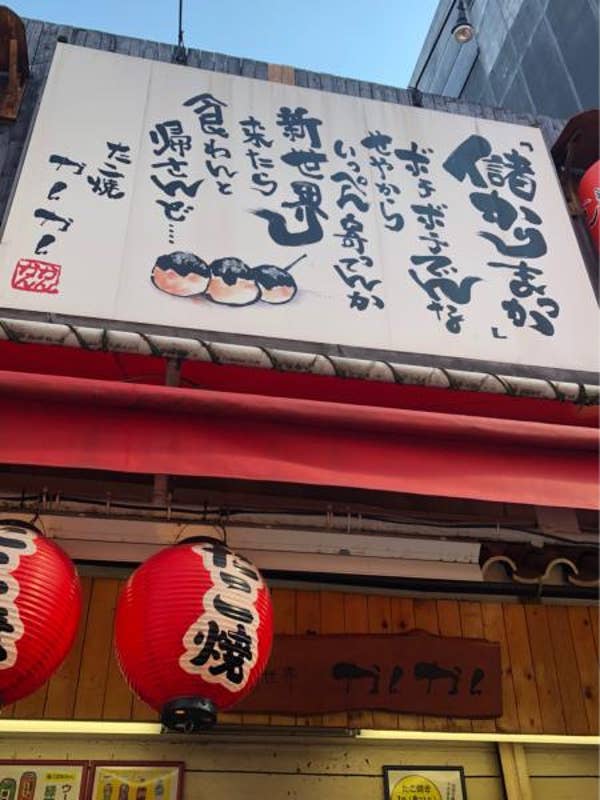 「儲かりまっか」
ボチボチでんな
せやから
いっぺん寄ってんか
新世界に
来たら
食わんと
帰さんど…
たこ焼
かんかん
たこ焼
世界 かんかん
たこ焼き